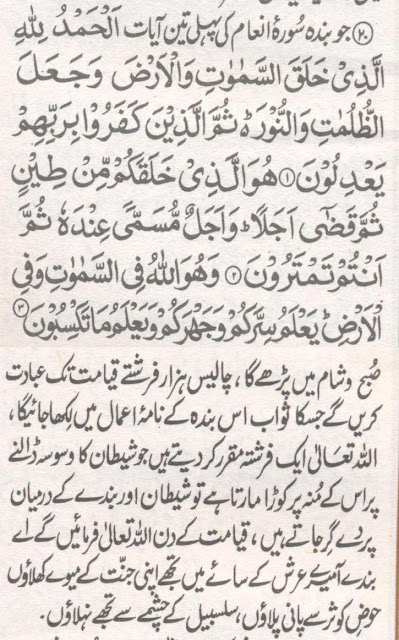 ⑳ جو بندہ سورۂ انعام کی پہلی تین آیات اَلْحَمْدُ لِلّٰهِ
الَّذِیْ خَلَقَ السَّمٰوٰتِ وَالْاَرْضَ وَجَعَلَ
الظُّلُمٰتِ وَالنُّوْرَ ۬ ثُمَّ الَّذِیْنَ كَفَرُوْا بِرَبِّهِمْ
یَعْدِلُوْنَ ① هُوَ الَّذِیْ خَلَقَكُمْ مِّنْ طِیْنٍ
ثُمَّ قَضٰۤی اَجَلًا ؕ وَاَجَلٌ مُّسَمًّی عِنْدَهٗ ثُمَّ
اَنْتُمْ تَمْتَرُوْنَ ② وَهُوَ اللّٰهُ فِی السَّمٰوٰتِ وَفِی
الْاَرْضِ ؕ یَعْلَمُ سِرَّكُمْ وَجَهْرَكُمْ وَیَعْلَمُ مَا تَكْسِبُوْنَ ③
صُبح و شام میں پڑھے گا، چالیس ہزار فرشتے قیامت تک عبادت
کریں گے جسکا ثواب اس بندہ کے نامۂ اعمال میں لکھا جائیگا،
اللہ تعالیٰ ایک فرشتہ مُقرر کر دیتے ہیں جو شیطان کا وسوسہ ڈالنے
پر اس کے مُنہ پر کوڑا مارتا ہے تو شیطان اور بندے کے درمیان
پردے گر جاتے ہیں، قیامت کے دن اللہ تعالیٰ فرمائیں گے اے
بندے آ میرے عرش کے سائے میں تجھے اپنی جنّت کے میوے کھلاؤں
حوض کوثر سے پانی پلاؤں، سلسبیل کے چشمے سے تجھے نہلاؤں۔